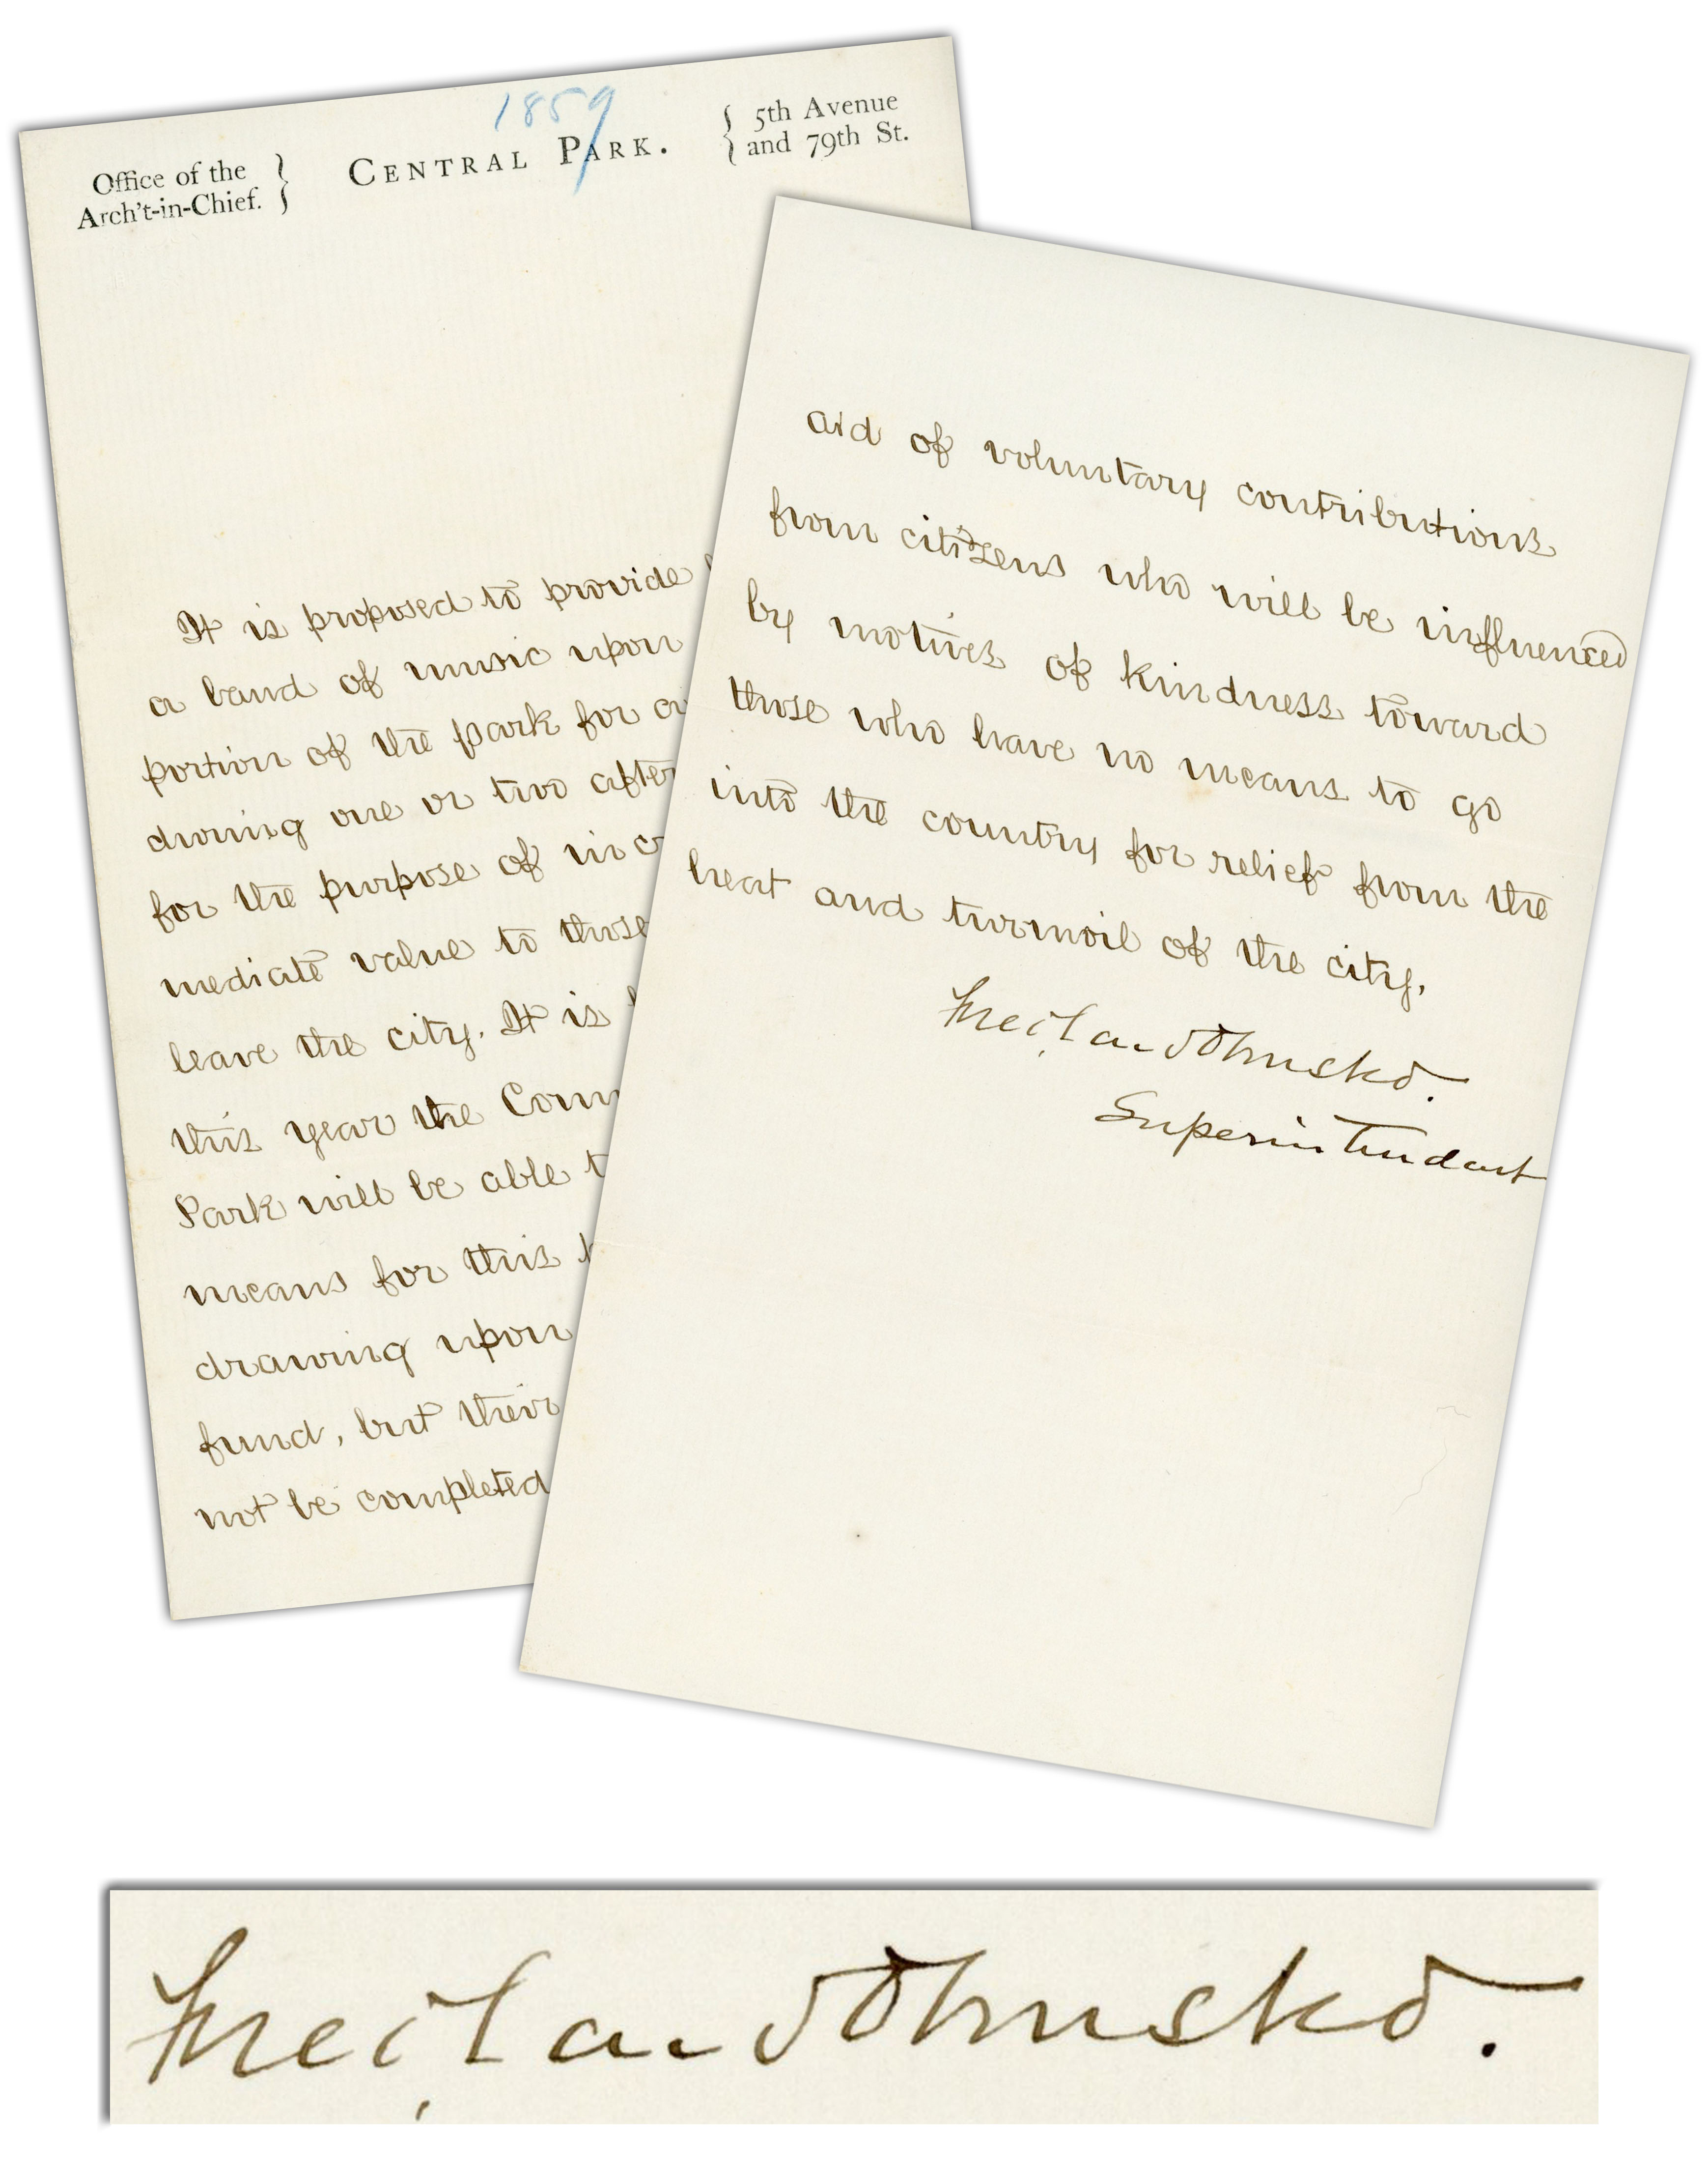 1859
Office of the
Arch't-in-Chief.
CENTRAL PARK.
5th Avenue
and 79th St.
It is proposed to provide
a band of music upon
portion of the park for
during one or two after
for the purpose of
mediate value to those
leave the city. It is
this year the Com
Park will be able
means for this
drawing upon
fund, but their
not be completed
aid of voluntary contributions
from citizens who will be influenced
by motives of kindness toward
those who have no means to go
into the country for relief from the
heat and turmoil of the city.
Fred. Law Olmsted.
Superintendent
Fred. Law Olmsted.